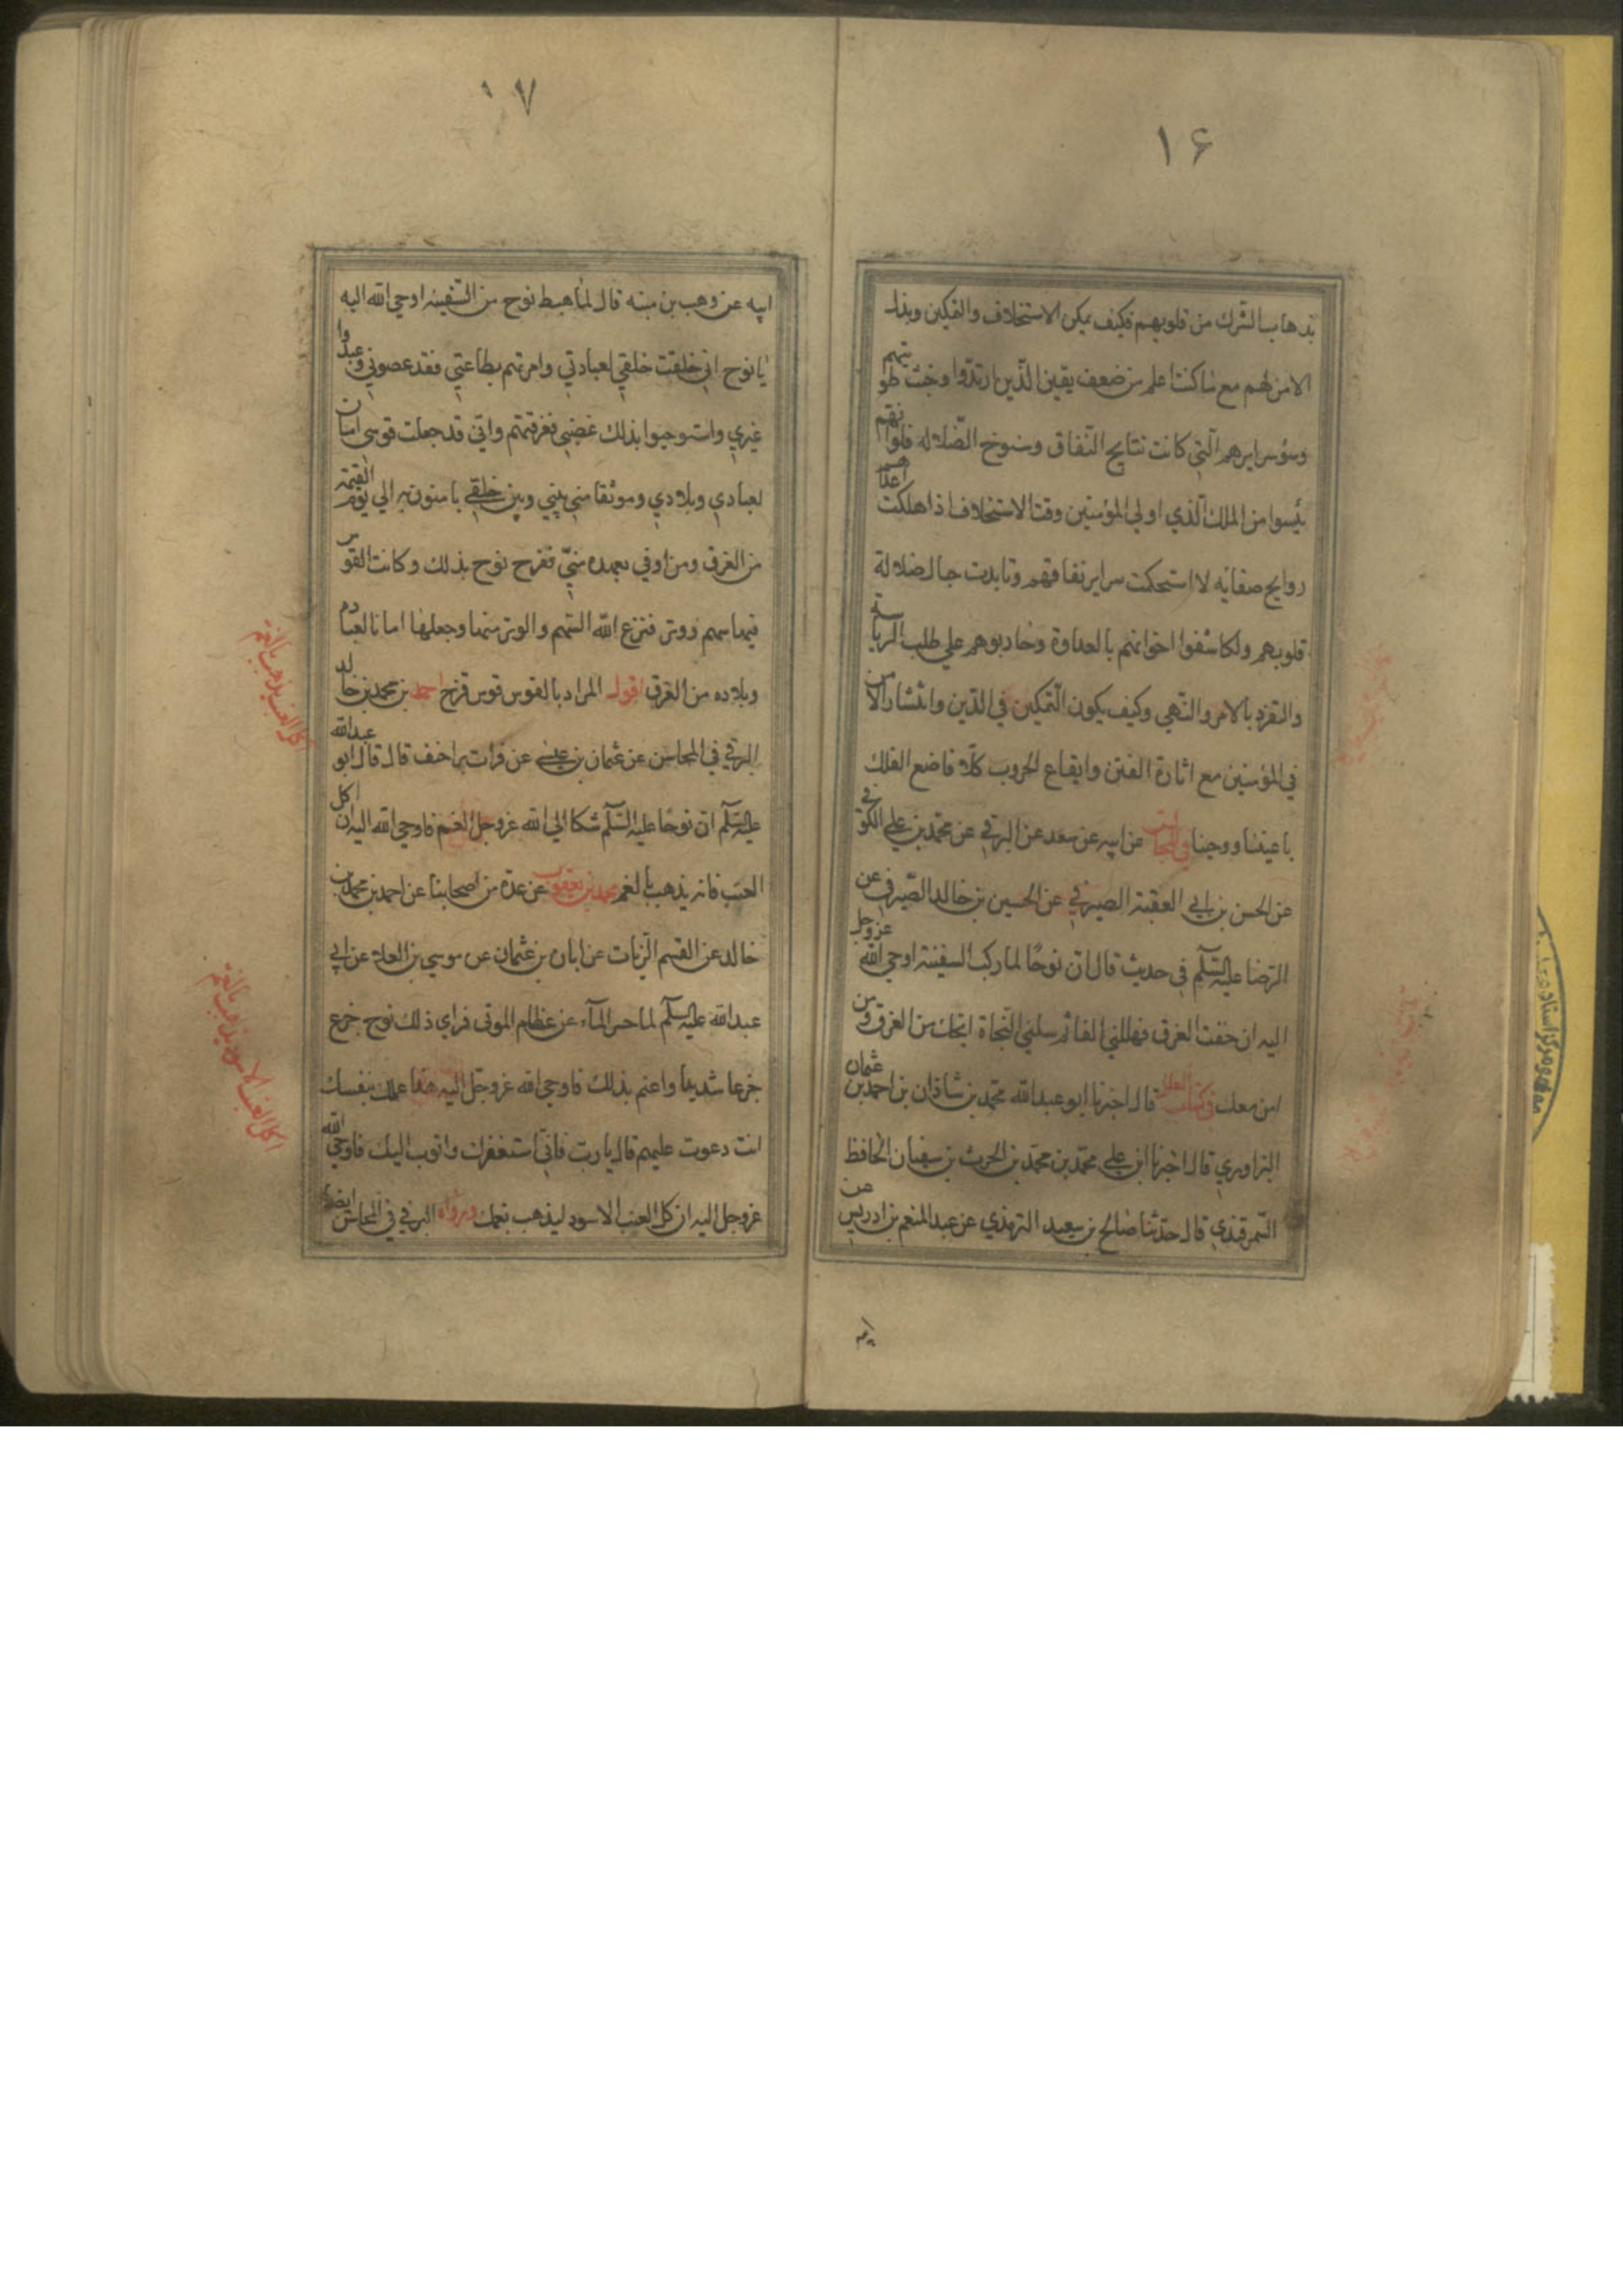 ۱۶
بذهاب الشرك من قلوبهم فكيف يمكن الاستخلاف والتمكين وبذل
الامن لهم مع ما كنت اعلم من ضعف يقين الذين ارتدوا وخبث طويتهم
وسؤ سرايرهم الّتي كانت نتايج النّفاق وسنوخ الضّلاله فلو انهم
يئسوا من الملك الّذي اولي المؤمنين وقت الاستخلاف اذا هلكت اعدا هم
روايح صفاته لا استحكمت سراير نفاقهم وتابدت حبال ضلالة
قلوبهم ولكاشفوا اخوانهم بالعداوة وحاربوهم علي طلب الرياسته
والتفرد بالامر والنّهي وكيف يكون التّمكين في الدّين وانتشار الامن
في المؤمنين مع اثارة الفتن وايقاع الحروب كلّا فاصنع الفلك
باعيننا ووحينا في المجالس عن ابيه عن سعد عن البرقي عن محمّد بن علي الكوفي
عن الحسن بن ابي العقبة الصيرفي عن الحسين بن خالد الصّيرفي عن
الرّضا عليه السّلم في حديث قال انّ نوحًا لما ركب السفينة اوحي الله عز وجل
اليه ان خفت الغرق فهللني الفا ثم سلني النّجاة انجك من الغرق ومن
امن معك في كتاب العلل قال اخبرنا ابو عبد الله محمّد بن شاذان بن احمد بن عثمان
البراوري قال اخبرنا ابن علي محمّد بن محمّد بن الحرث بن سفيان الحافظ
السّمرقندي قال حدّثنا صالح بن سعيد الترمذي عن عبد المنعم بن ادريس عن
ابيه
۱۷
ابيه عن وهب بن منبه قال لمّا هبط نوح من السّفينه اوحي الله اليه
يا نوح انّي خلقت خلقي لعبادتي وامرتهم بطاعتي فقد عصوني وعبدوا
غيري واستوجبوا بذلك غضبي فغرقتهم وانّي قد جعلت قوسي امانا
لعبادي وبلادي وموثقا منّي بيني وبين خلقي يامنون به الي يوم القيمة
من الغرق ومن اوفي بعهده منّي ففرح نوح بذلك وكانت القوس
فيها سهم ووتر فنزع الله السّهم والوتر منها وجعلها امانا لعباده
وبلاده من الغرق اقول المراد بالقوس قوس قزح احمد بن محمد بن خالد
البرقي في المحاسن عن عثمان بن عيسي عن فرات بن احنف قال قال ابو عبد الله
عليه السّلم ان نوحًا عليه السّلم شكا الي الله عزوجل الغم فاوحي الله اليه ان اكل
العنب فانه يذهب بالغم محمد بن يعقوب عن عدة من اصحابنا عن احمد بن محمد بن
خالد عن القسم الزّيات عن ابان بن عثمان عن موسي بن العلا عن ابي
عبد الله عليه السلم لما حسر المآء عن عظام الموتي فراي ذلك نوح جزع
جزعا شديدا واغتم بذلك فاوحي الله عزوجل اليه هذا عملك بنفسك
انت دعوت عليهم قال يا ربّ فانّي استغفرك واتوب اليك فاوحي الله
عزوجل اليه ان كل العنب الاسود ليذهب بغمك ورواه البرقي في المحاسن ايضا
اكل العنب يذهب بالغم
اكل العنب الاسود يذهب بالغم